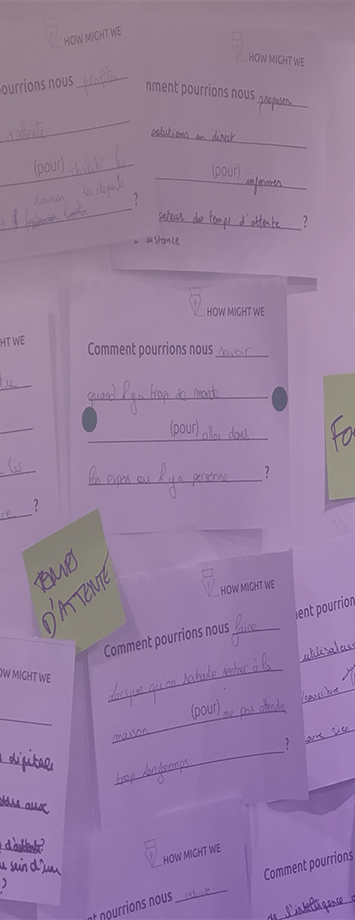 HOW MIGHT WE
ourrions nous profiter
d'attente
(pour)
?
HOW MIGHT WE
mment pourrions nous proposer
solutions en direct
(pour) informer
sateur des temps d'attente ?
à distance
HT WE
?
HOW MIGHT WE
Comment pourrions nous savoir
quand il y a trop de monde
(pour) aller dans
les expos où il y a personne ?
Fo
TEMPS
D'ATTENTE
HOW MIGHT WE
Comment pourrions nous faire
lorsque qu'on souhaite rentrer à la
maison (pour) ne pas attendre
trop longtemps ?
ent pourrion
utilisateur
OW MIGHT WE
digitale
aux
d'attente?
sein d'un
?
HOW MIGHT WE
nt pourrions nous réduire
Comment pourrions
de l'intelligence